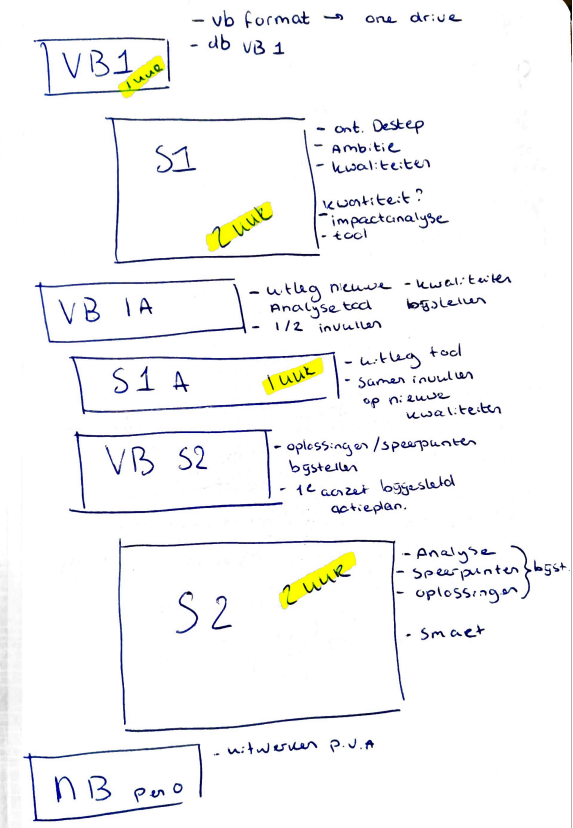 - vb format → one drive
- db VB 1
VB1
1 uur
S1
2 uur
- ont. Destep
- Ambitie
- kwaliteiten
kwantiteit?
- impactanalyse
- tool
VB 1A
- uitleg nieuwe
Analysetool
- 1/2 invullen
- kwaliteiten
bijstellen
S1 A
1 uur
- uitleg tool
- samen invullen
op nieuwe
kwaliteiten
VB S2
- oplossingen/speerpunten
bijstellen
- 1e aanzet bijgesteld
actieplan.
S2
2 uur
- Analyse
- speerpunten
- oplossingen
bijst.
- smart
NB pen o
- uitwerken p.v.A